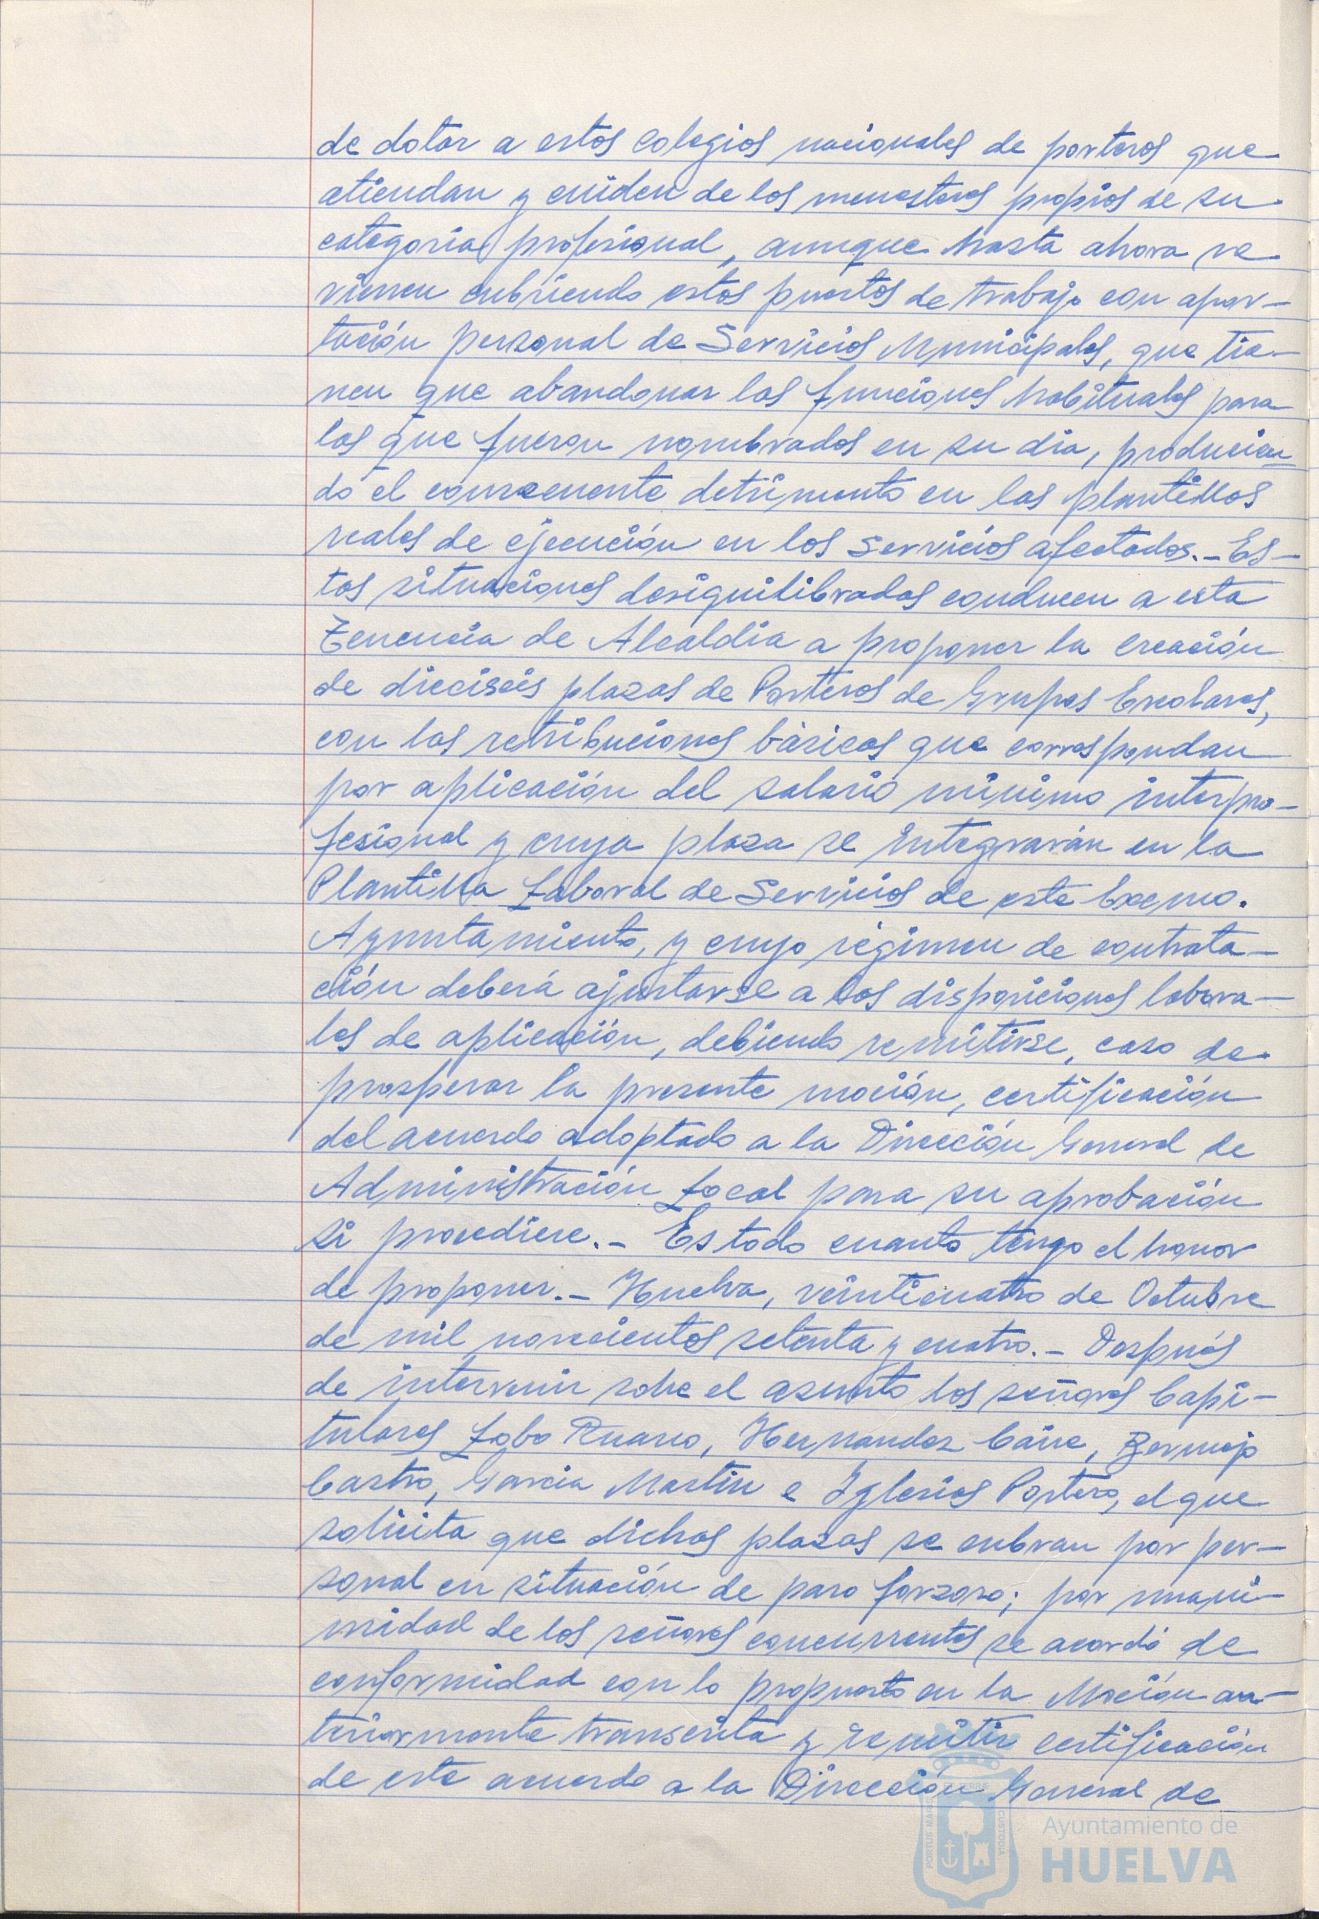 de dotar a estos colegios nacionales de porteros que
atiendan y cuiden de los menesteres propios de su
categoría profesional, aunque hasta ahora se
vienen cubriendo estos puestos de trabajo con apor-
tación personal de Servicios Municipales, que tie-
nen que abandonar las funciones habituales para
las que fueron nombrados en su día, producien-
do el consecuente detrimento en las plantillas
reales de ejecución en los servicios afectados.- Es-
tas situaciones desiquilibradas conducen a esta
Tenencia de Alcaldía a proponer la creación
de dieciséis plazas de Porteros de Grupos Escolares,
con las retribuciones básicas que correspondan
por aplicación del salario mínimo interpro-
fesional y cuya plaza se integrarán en la
Plantilla Laboral de Servicios de este Excmo.
Ayuntamiento, y cuyo régimen de contrata-
ción deberá ajustarse a las disposiciones labora-
les de aplicación, debiendo remitirse, caso de
prosperar la presente moción, certificación
del acuerdo adoptado a la Dirección General de
Administración Local para su aprobación
si procediere.- Es todo cuanto tengo el honor
de proponer.- Huelva, veinticuatro de Octubre
de mil novecientos setenta y cuatro.- Después
de intervenir sobre el asunto los señores Capi-
tulares Lobo Ruano, Hernandez Cárre, Bermejo
Castro, Garcia Martín e Iglesias Portero, el que
solicita que dichas plazas se cubran por per-
sonal en situación de paro forzoso; por unani-
midad de los señores concurrentes se acordó de
conformidad con lo propuesto en la Moción an-
teriormente transcrita y remitir certificación
de este acuerdo a la Dirección General de
PORTUS MARIS
CUSTODIA
Ayuntamiento de
HUELVA